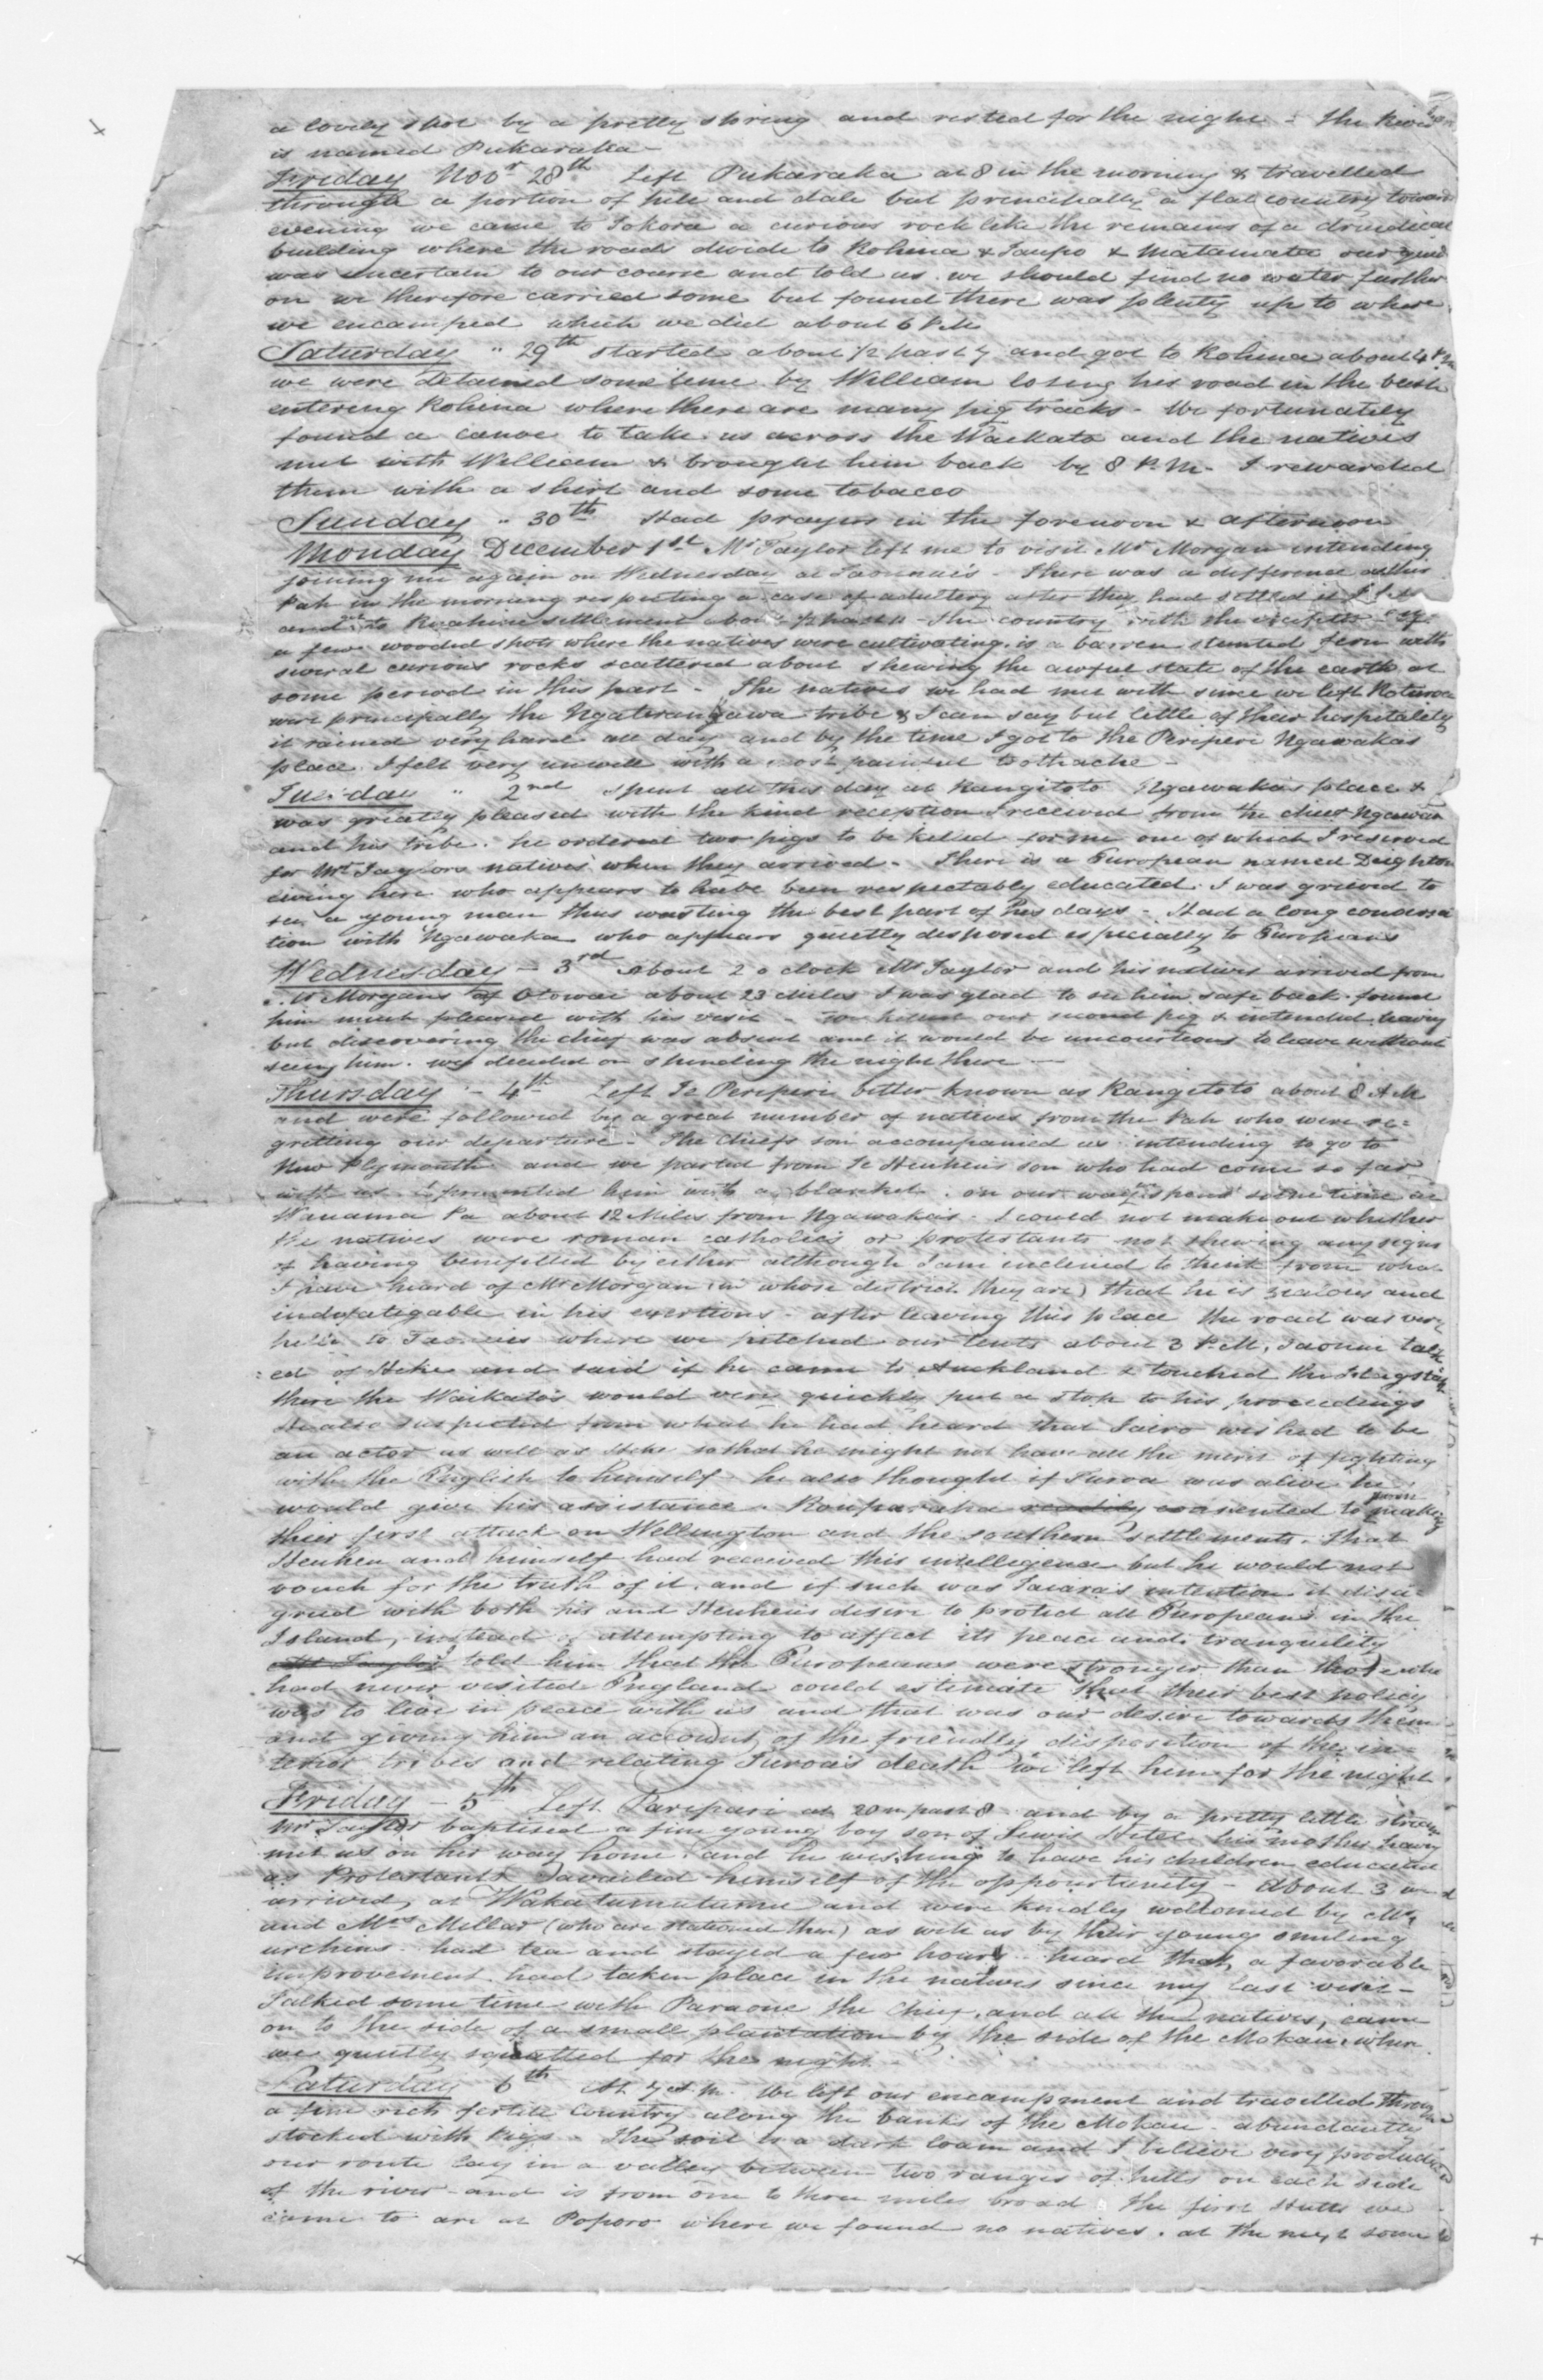 a lovely spot by a pretty spring and rested for the night - the River
is named Pukaraka -
Friday Novr 28th Left Pukaraka at 8 in the morning & travelled
through a portion of hill and dale but principally a flat country toward
evening we came to Tokora a curious rock like the remains of a druidical
building where the roads divide to Rohina & Taupo & Matamata our guide
was uncertain to our course and told us we should find no water further
on we therefore carried some but found there was plenty up to where
we encamped which we did about 6 P.M
Saturday " 29th started about 1/2 past 7 and got to Rohina about 4 P.M
we were Detained some time by William losing his road in the bush
entering Rohina where there are many pig tracks - We fortunately
found a canoe to take us across the Waikato and the natives
met with William & brought him back by 8 P.M - I rewarded
them with a shirt and some tobacco
Sunday " 30th Had prayers in the forenoon & afternoon
Monday December 1st Mr Taylor left me to visit Mr Morgan intending
joining me again on Wednesday at Taonuis - There was a difference at this
Pah in the morning respecting a case of adultery after they had settled it I left
and to settlement about 1/2 past - the country with the of
a few wooded spots where the natives were cultivating is a barren stunted fern with
several curious rocks scattered about shewing the awful state of the earth at
some period in this part - The natives we had met with since we left Rotorua
were principally the Ngaterangawa tribe & I can say but little of their hospitality
it rained very hard all day and by the time I got to the Periperi Ngawakas
place I felt very unwell with a most painful toothache -
Tuesday " 2nd spent all this day at Rangitoto Ngawakas place &
was greatly pleased with the kind reception I received from the chief Ngawaka
and his tribe. he ordered two pigs to be killed for me one of which I reserved
for Mr Taylors natives when they arrived - There is a European named Deighton
living here who appears to have been respectably educated. I was grieved to
see a young man thus wasting the best part of his days - Had a long conversa
tion with Ngawaka who appears quietly disposed especially to Europeans
Wednesday - 3rd about 2 o clock Mr Taylor and his natives arrived from
Mr Morgans of Otowai about 23 Miles I was glad to see him safe back found
him much pleased with his visit - our second pig & intended leaving
but discovering the chief was absent and it would be uncourteous to leave without
seeing him. we decided on spending the night there -
Thursday - 4th Left Te Periperi better known as Rangitoto about 8 A.M
and were followed by a great number of natives from the Pah who were re=
gretting our departure - The chiefs son accompanied us intending to go to
New Plymouth and we parted from Te Heuheus son who had come so far
with us I presented him with a blanket. on our way spent some time at
Wanama Pa about 12 Miles from Ngawakas - I could not make out whether
the natives were roman catholics or protestants not shewing any signs
of having benefitted by either although I am inclined to think from what
I have heard of Mr Morgan (in whose district they are) that he is zealous and
indefatigable in his exertions - after leaving this place the road was very
hilly to Taonuis where we pitched our tents about 3 P.M, Taonui talk
=ed of Heke and said if he came to Auckland & touched the Flagstaff
there the Waikatos would very quickly put a stop to his proceedings
He also suspected from what he had heard that wished to be
an actor as well as Heke so that he might not have all the merit of fighting
with the English to himself - he also thought if Turoa was alive he
would give his assistance - Rauparaha readily consented to join making
their first attack on Wellington and the southern settlements. that
Heuheu and himself had received this intelligence but he would not
vouch for the truth of it. and if such was intention it disa=
greed with both his and Heuheus desire to protect all Europeans in the
Island, instead of attempting to affect its peace and tranquility
Mr Taylor told him that the Europeans were stronger than those who
had never visited England could estimate that their best policy
was to live in peace with us and that was our desire towards them
and giving him an account of the friendly disposition of the in=
terior tribes and relating Turoas death we left him for the night
Friday - 5th Left Paripari at 20 m past 8 and by a pretty little stream
Mr Taylor baptised a fine young boy son of Lewis his mother having
met us on his way home. and he wishing to have his children educated
as Protestants availed himself of the opportunity - About 3 we
arrived, at Wakatumutumu and were kindly welcomed by Mr
and Mrs Millar (who are stationed there) as well as by their young smiling
urchins - had tea and stayed a few hours - heard that, a favorable
improvement had taken place in the natives since my last visit -
Talked some time with Paraone the chief, and all the natives, came
on to the side of a small plantation by the side of the Mokau, where
we quietly squatted for the night -
Saturday 6th At 7 A.M. We left our encampment and travelled through
a fine rich fertile Country along the banks of the Mokau - abundantly
stocked with Pigs - The soil is a dark loam and I believe very productive
our route lay in a valley between two ranges of hills on each side
of the river - and is from one to three miles broad. the first Hutts we
came to are at Poporo where we found no natives. at the next some